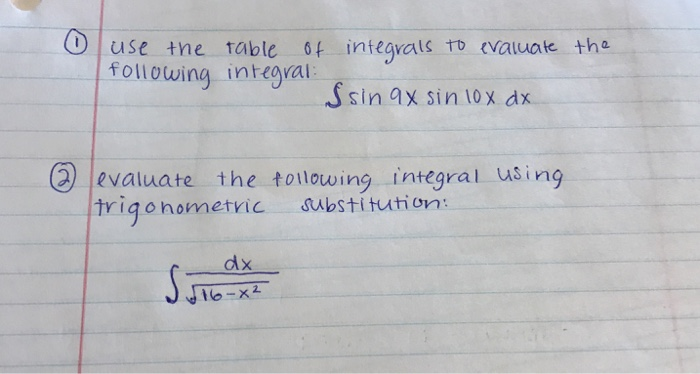 ① use the table of integrals to evaluate the
following integral:
∫ sin 9x sin 10x dx
② evaluate the following integral using
trigonometric substitution:
∫ dx / √16-x²